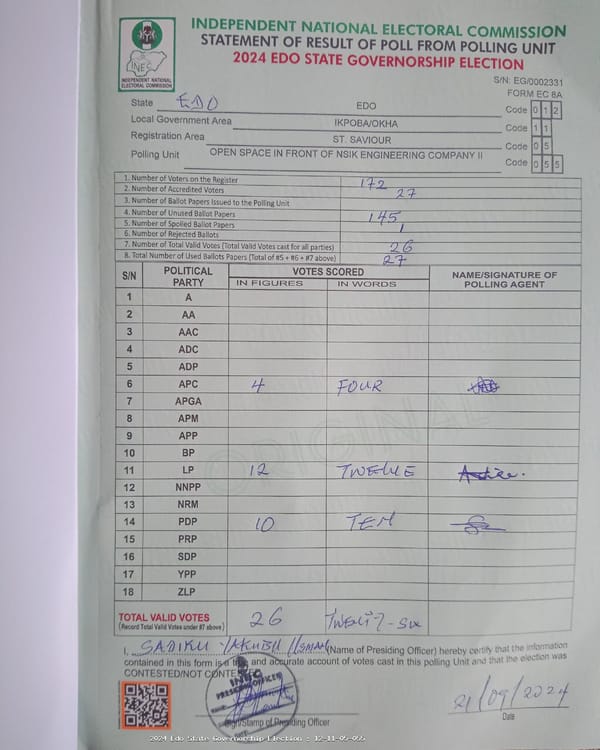 INDEPENDENT NATIONAL ELECTORAL COMMISSION
STATEMENT OF RESULT OF POLL FROM POLLING UNIT
2024 EDO STATE GOVERNORSHIP ELECTION
INEC
INDEPENDENT NATIONAL
ELECTORAL COMMISSION
S/N: EG/0002331
FORM EC 8A
State EDO EDO Code 0 1 2
Local Government Area IKPOBA/OKHA Code 1 1
Registration Area ST. SAVIOUR Code 0 5
Polling Unit OPEN SPACE IN FRONT OF NSIK ENGINEERING COMPANY II Code 0 5 5
1. Number of Voters on the Register 172
2. Number of Accredited Voters 27
3. Number of Ballot Papers Issued to the Polling Unit
4. Number of Unused Ballot Papers 145
5. Number of Spoiled Ballot Papers
6. Number of Rejected Ballots 1
7. Number of Total Valid Votes (Total Valid Votes cast for all parties) 26
8. Total Number of Used Ballots Papers (Total of #5 + #6 + #7 above) 27
S/N POLITICAL PARTY VOTES SCORED NAME/SIGNATURE OF POLLING AGENT
IN FIGURES IN WORDS
1 A
2 AA
3 AAC
4 ADC
5 ADP
6 APC 4 FOUR
7 APGA
8 APM
9 APP
10 BP
11 LP 12 TWELVE
12 NNPP
13 NRM
14 PDP 10 TEN
15 PRP
16 SDP
17 YPP
18 ZLP
ORIGINAL
TOTAL VALID VOTES 26 TWENTY-SIX
(Record Total Valid Votes under #7 above)
I, SADIKU (Name of Presiding Officer) hereby certify that the information
contained in this form is a and accurate account of votes cast in this polling Unit and that the election was
CONTESTED/NOT CONTE
INEC
PRESIDING OFFICER
Sign/Stamp of Presiding Officer
21/09/2024
Date
2024 Edo State Governorship Election : 12-11-05-055